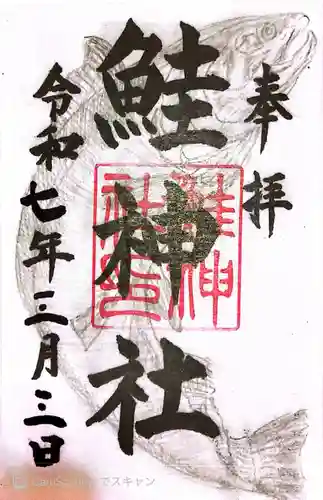 奉拝
鮭神社
令和七年三月三日
鮭神社印
CamScanner でスキャン